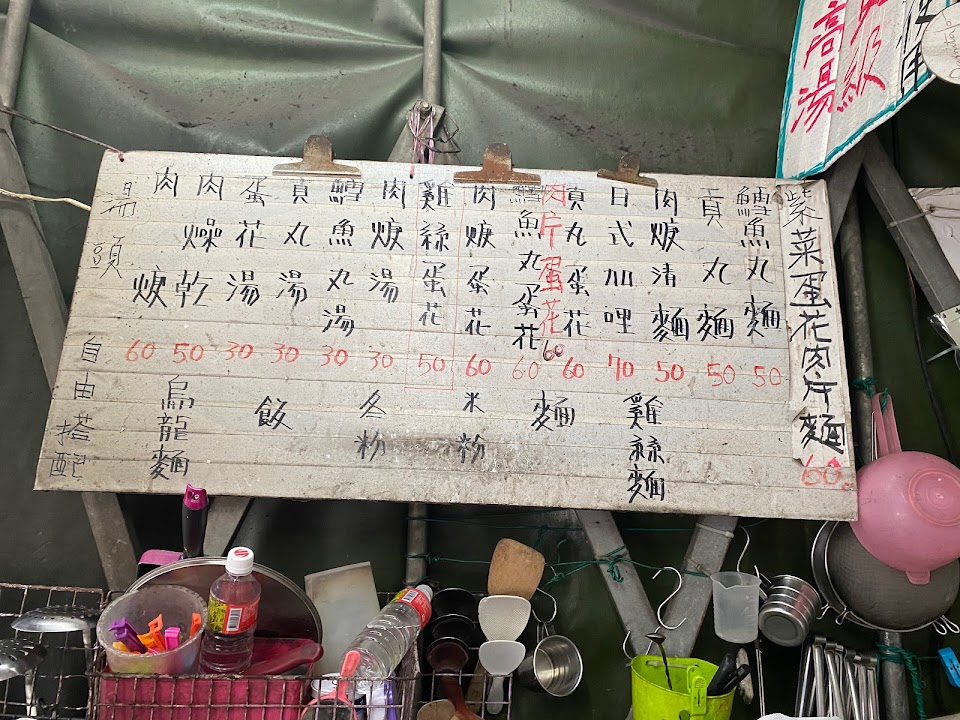 湯頭
肉焿 60
肉燥乾 50
蛋花湯 30
貢丸湯 30
鱈魚丸湯 30
肉焿湯 30
雞絲蛋花 50
肉焿蛋花 60
鱈魚丸蛋花 60
肉片蛋花 60
貢丸蛋花 60
日式加哩 70
肉焿清麵 50
貢丸麵 50
鱈魚丸麵 50
紫菜蛋花肉片麵 60
自由搭配
烏龍麵
飯
冬粉
米粉
麵
雞絲麵
級
高湯